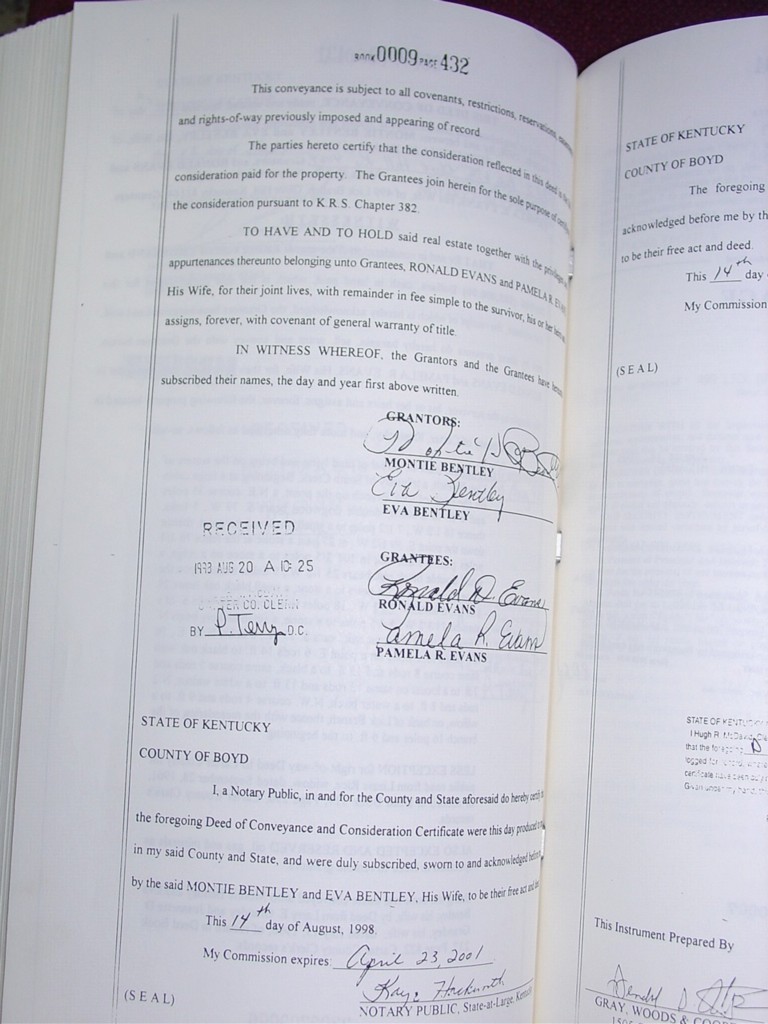 BOOK 0009 PAGE 432
This conveyance is subject to all covenants, restrictions, reservations,
and rights-of-way previously imposed and appearing of record.
The parties hereto certify that the consideration reflected in this deed is the
consideration paid for the property. The Grantees join herein for the sole purpose of
the consideration pursuant to K.R.S. Chapter 382.
TO HAVE AND TO HOLD said real estate together with the
appurtenances thereunto belonging unto Grantees, RONALD EVANS and PAMELA R. EVANS,
His Wife, for their joint lives, with remainder in fee simple to the survivor, his or her heirs
assigns, forever, with covenant of general warranty of title.
IN WITNESS WHEREOF, the Grantors and the Grantees have
subscribed their names, the day and year first above written.
GRANTORS:
MONTIE BENTLEY
Eva Bentley
EVA BENTLEY
RECEIVED
AUG 20 A 10:25
CO. CLERK
BY P. Terry D.C.
GRANTEES:
Ronald D. Evans
RONALD EVANS
Pamela R. Evans
PAMELA R. EVANS
STATE OF KENTUCKY
COUNTY OF BOYD
I, a Notary Public, in and for the County and State aforesaid do hereby certify
the foregoing Deed of Conveyance and Consideration Certificate were this day produced
in my said County and State, and were duly subscribed, sworn to and acknowledged before
by the said MONTIE BENTLEY and EVA BENTLEY, His Wife, to be their free act and
This 14th day of August, 1998.
My Commission expires: April 23, 2001
(SEAL)
NOTARY PUBLIC, State-at-Large,
STATE OF KENTUCKY
COUNTY OF BOYD
The foregoing
acknowledged before me by th
to be their free act and deed.
This 14th day
My Commission
(SEAL)
STATE OF KENTUCKY
I Hugh R.
that the foregoing
This Instrument Prepared By
GRAY, WOODS & COOP